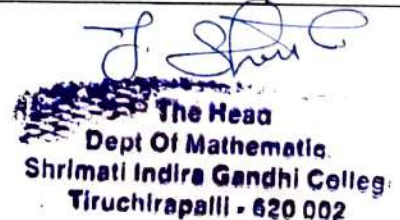 The Head
Dept Of Mathematic
Shrimati Indira Gandhi Colleg
Tiruchirapalli - 620 002